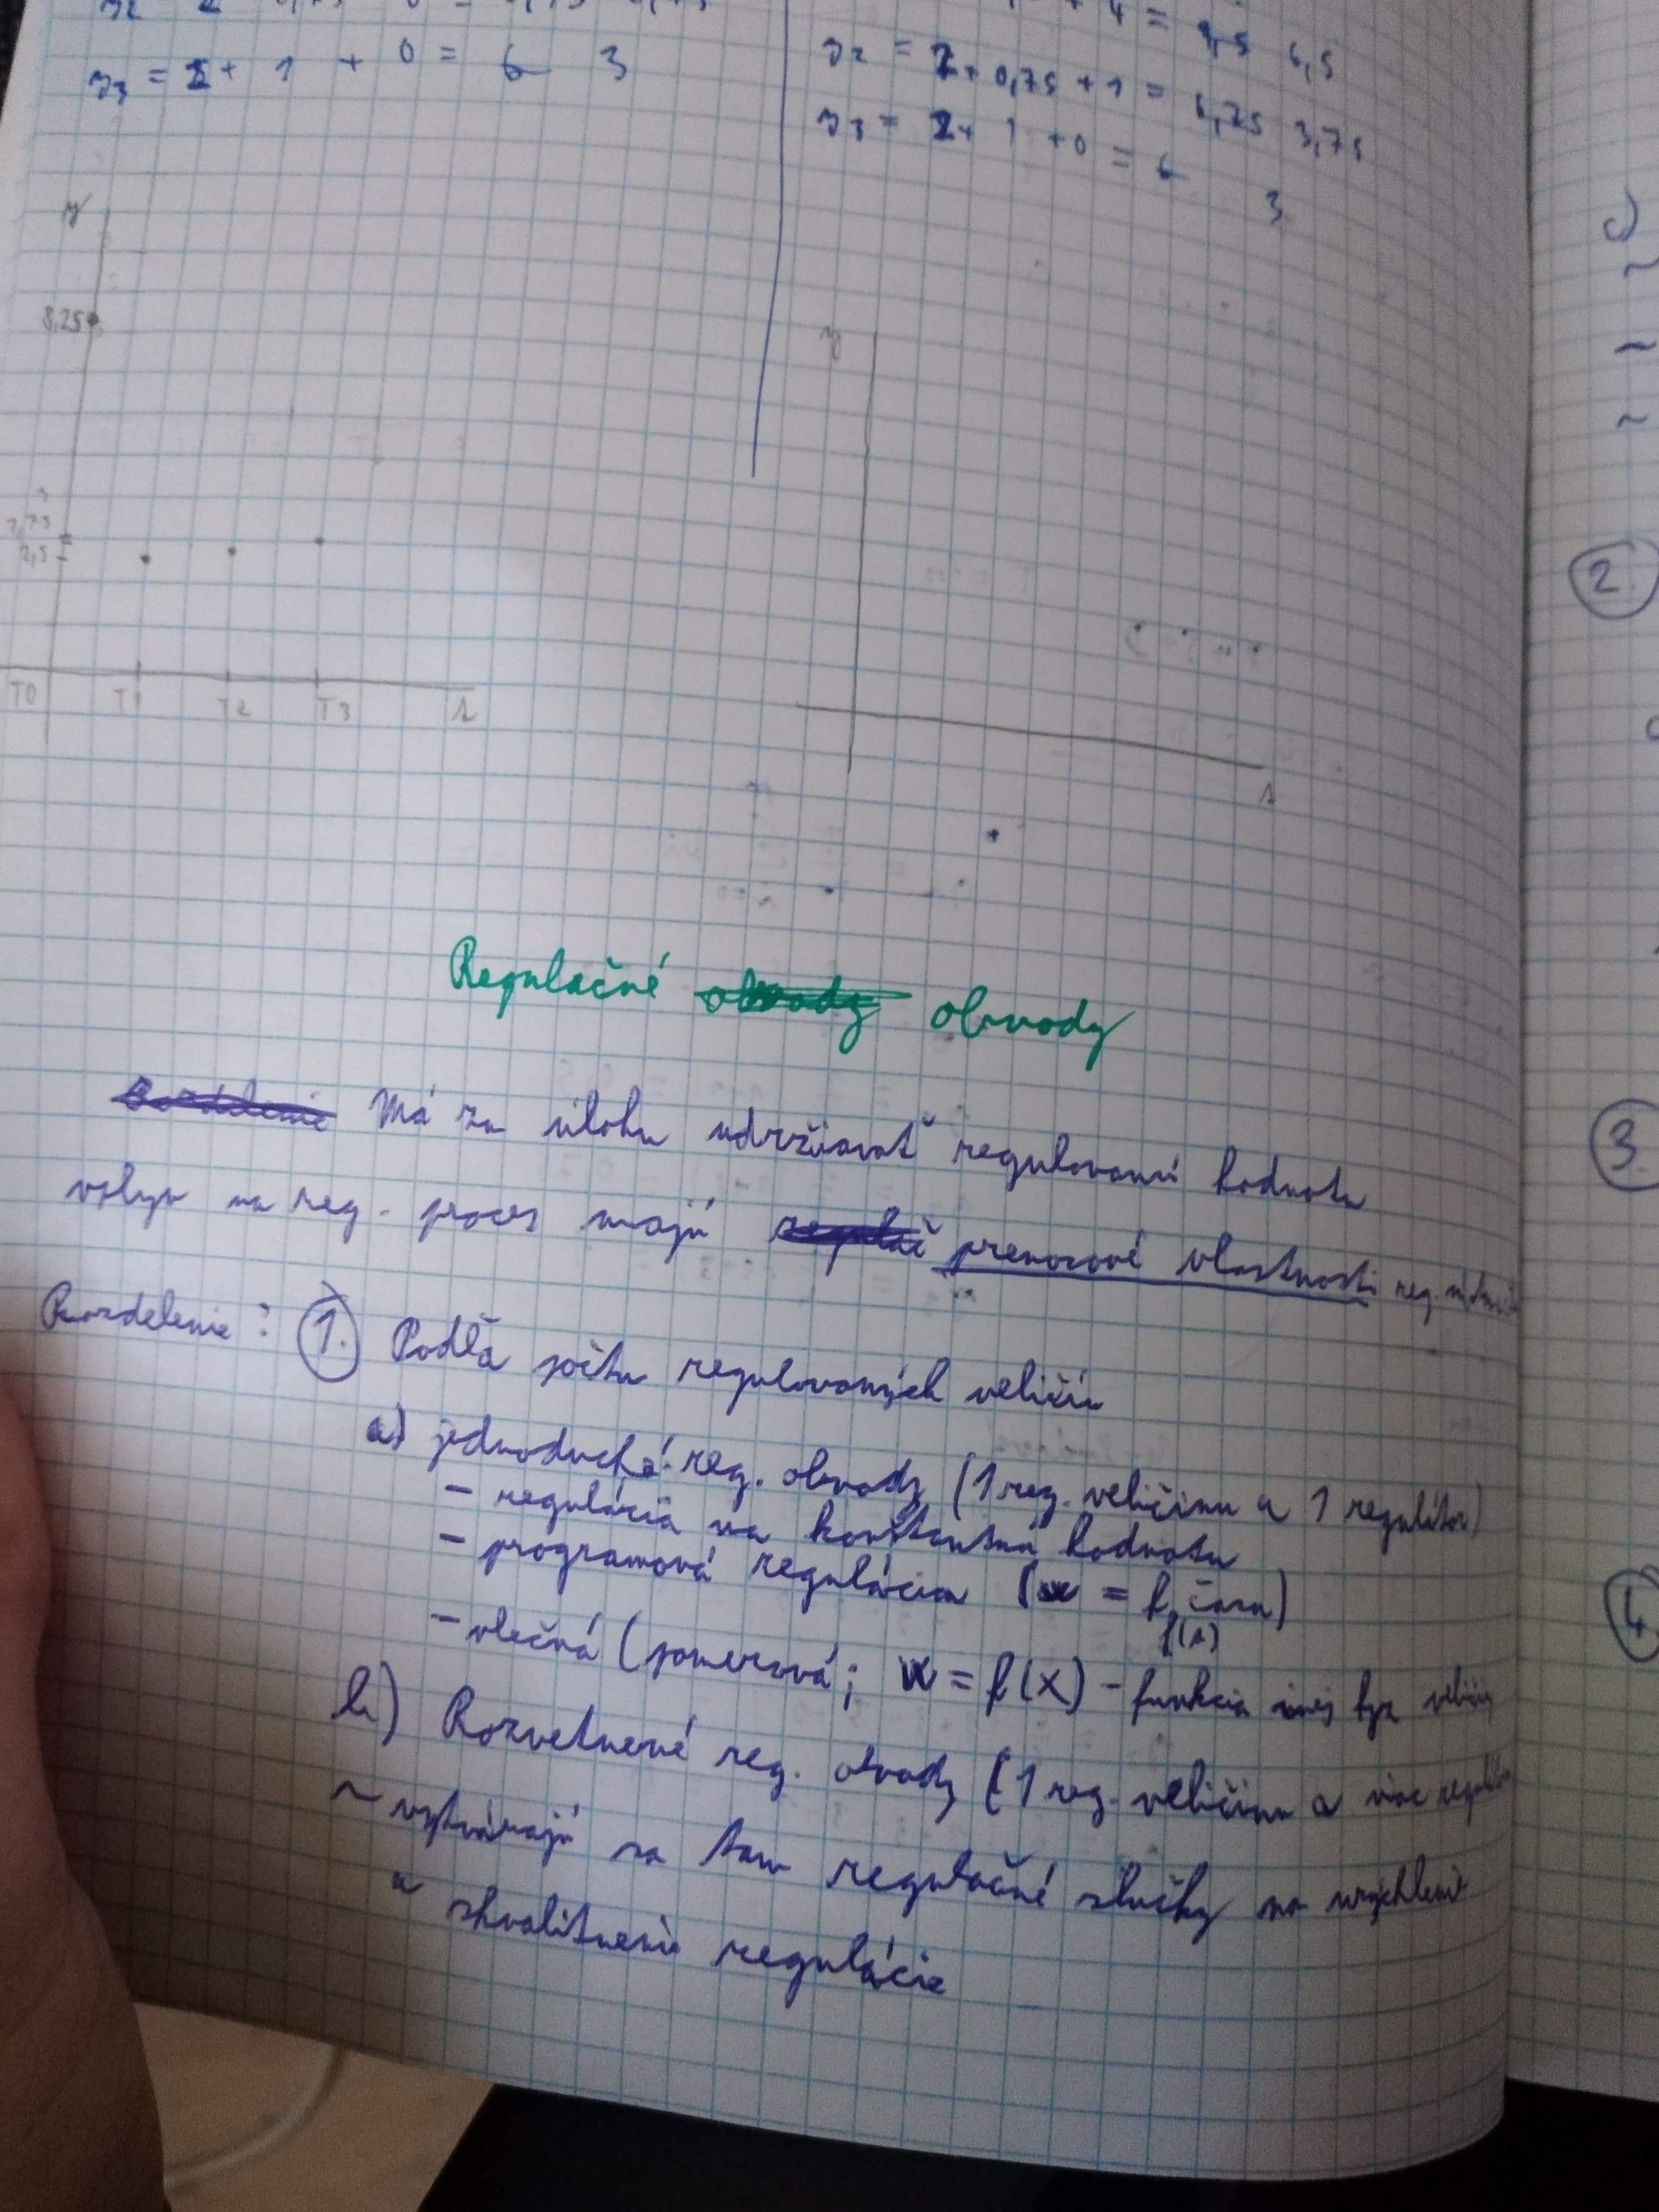 y3 = 2 + 1 + 0 = 6 3
+ 4 = 9,5 6,5
y2 = 2 + 0,75 + 1 = 6,75 3,75
y3 = 2 + 1 + 0 = 6 3
y
8,25
2,75
2,5
T0 T1 T2 T3 t
y
t
Regulačné obvody obvody
Rozdelenie Má za úlohu udržiavať regulovanú hodnotu
vplyv na reg. proces majú regulač prenosové vlastnosti reg.
Rozdelenie: 1. Podľa počtu regulovaných veličín
a) jednoduché reg. obvody (1 reg. veličinu a 1 regulátor)
- regulácia na konštantnú hodnotu
- programová regulácia (w = f. času)
f(t)
- vlečná (pomerová; w = f(x) - funkcia inej fyz. veličiny
b) Rozvetvené reg. obvody (1 reg. veličinu a viac
~ vytvárajú sa tam regulačné slučky na urýchlenie
a skvalitnenie regulácie
c)
~
~
~
2.
3.
4.